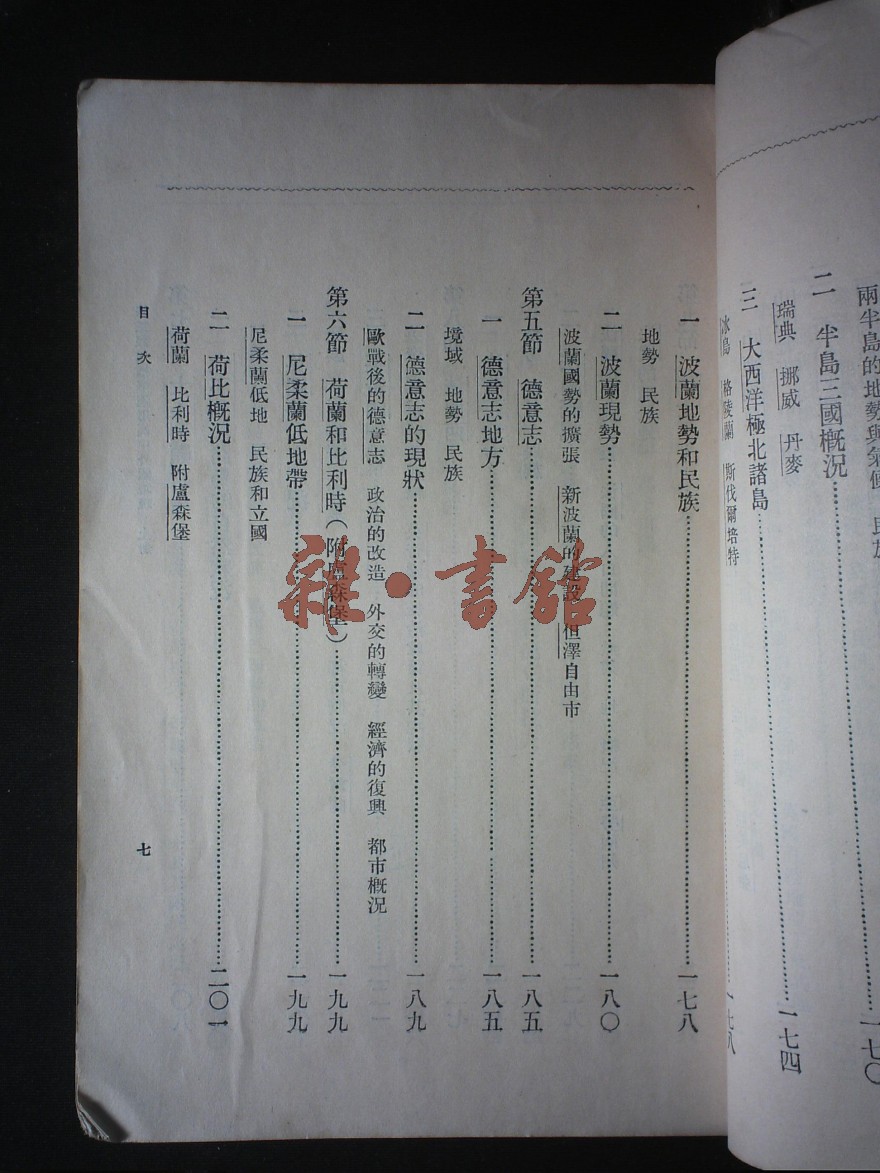 兩半島的地勢與氣候　民族……一七〇
二　半島三國概況……
瑞典　挪威　丹麥
三　大西洋極北諸島……一七四
冰島　格陵蘭　斯伐爾培特
一七八
一　波蘭地勢和民族……一七八
地勢　民族
二　波蘭現勢……一八〇
波蘭國勢的擴張　新波蘭的建設　但澤自由市
第五節　德意志……一八五
一　德意志地方……一八五
境域　地勢　民族
二　德意志的現狀……一八九
歐戰後的德意志　政治的改造　外交的轉變　經濟的復興　都市概況
第六節　荷蘭和比利時（附盧森堡）……一九九
一　尼柔蘭低地帶……一九九
尼柔蘭低地　民族和立國
二　荷比概況……二〇一
荷蘭　比利時　附盧森堡
目次　七
雜·書館